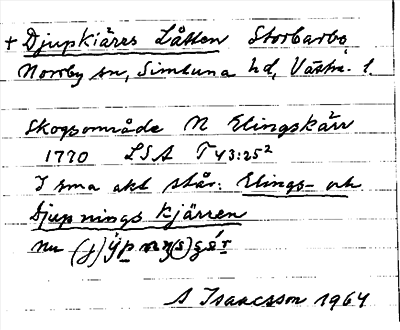 + Djupkiäres Låtten Storbarbo,
Norrby sn, Simtuna hd, Västm. l.
Skogsområde N Elingskärr
1770 LSA T43:25²
I sma akt står: Elings- och
Djupnings kjärren
nu
A Isaacsson 1964